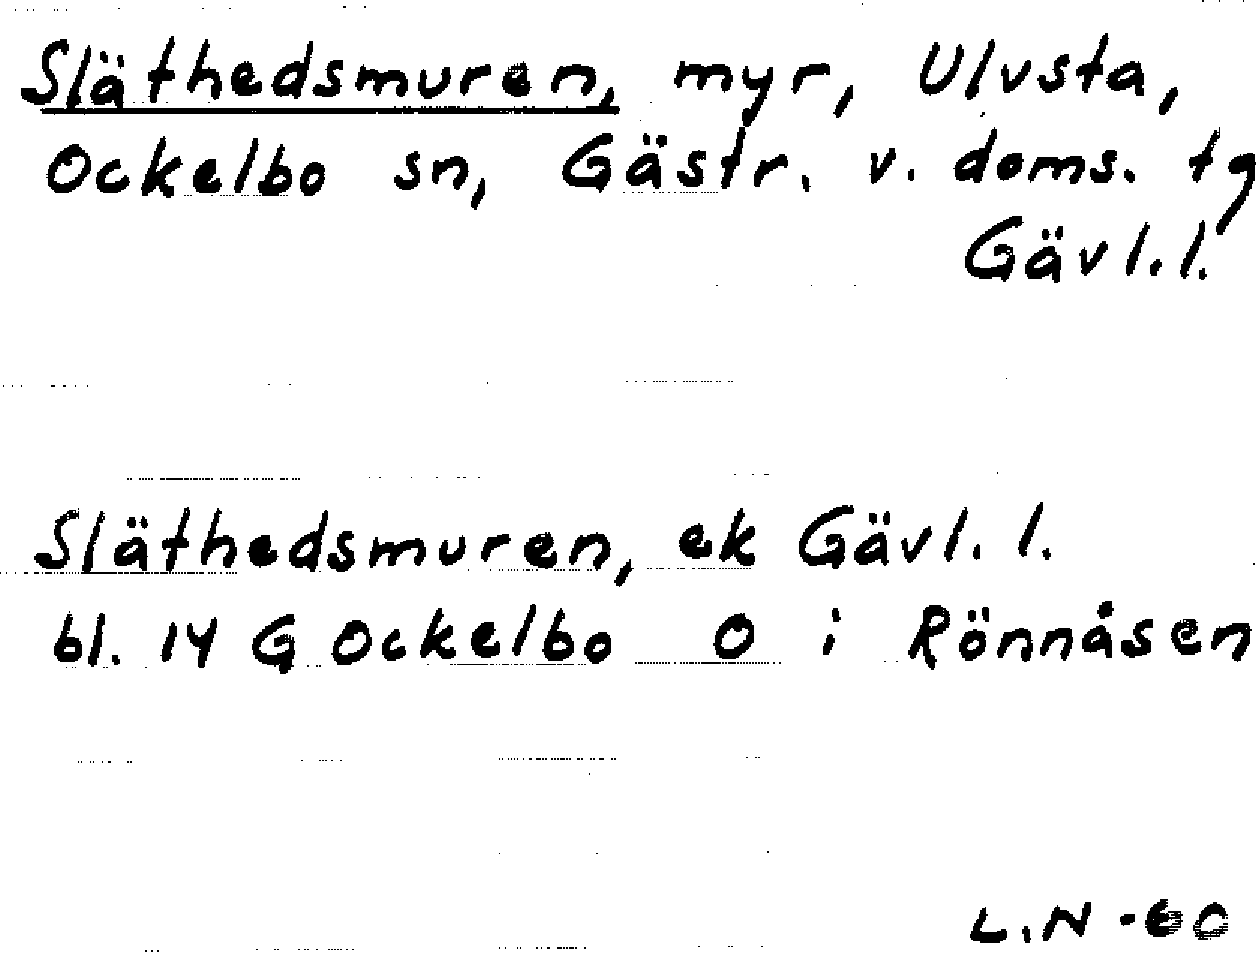 Släthedsmuren, myr, Ulvsta,
Ockelbo sn, Gästr. v. doms. tg
Gävl. l.
Släthedsmuren, ek Gävl. l.
bl. 14 G Ockelbo O i Rönnåsen
L.N -60